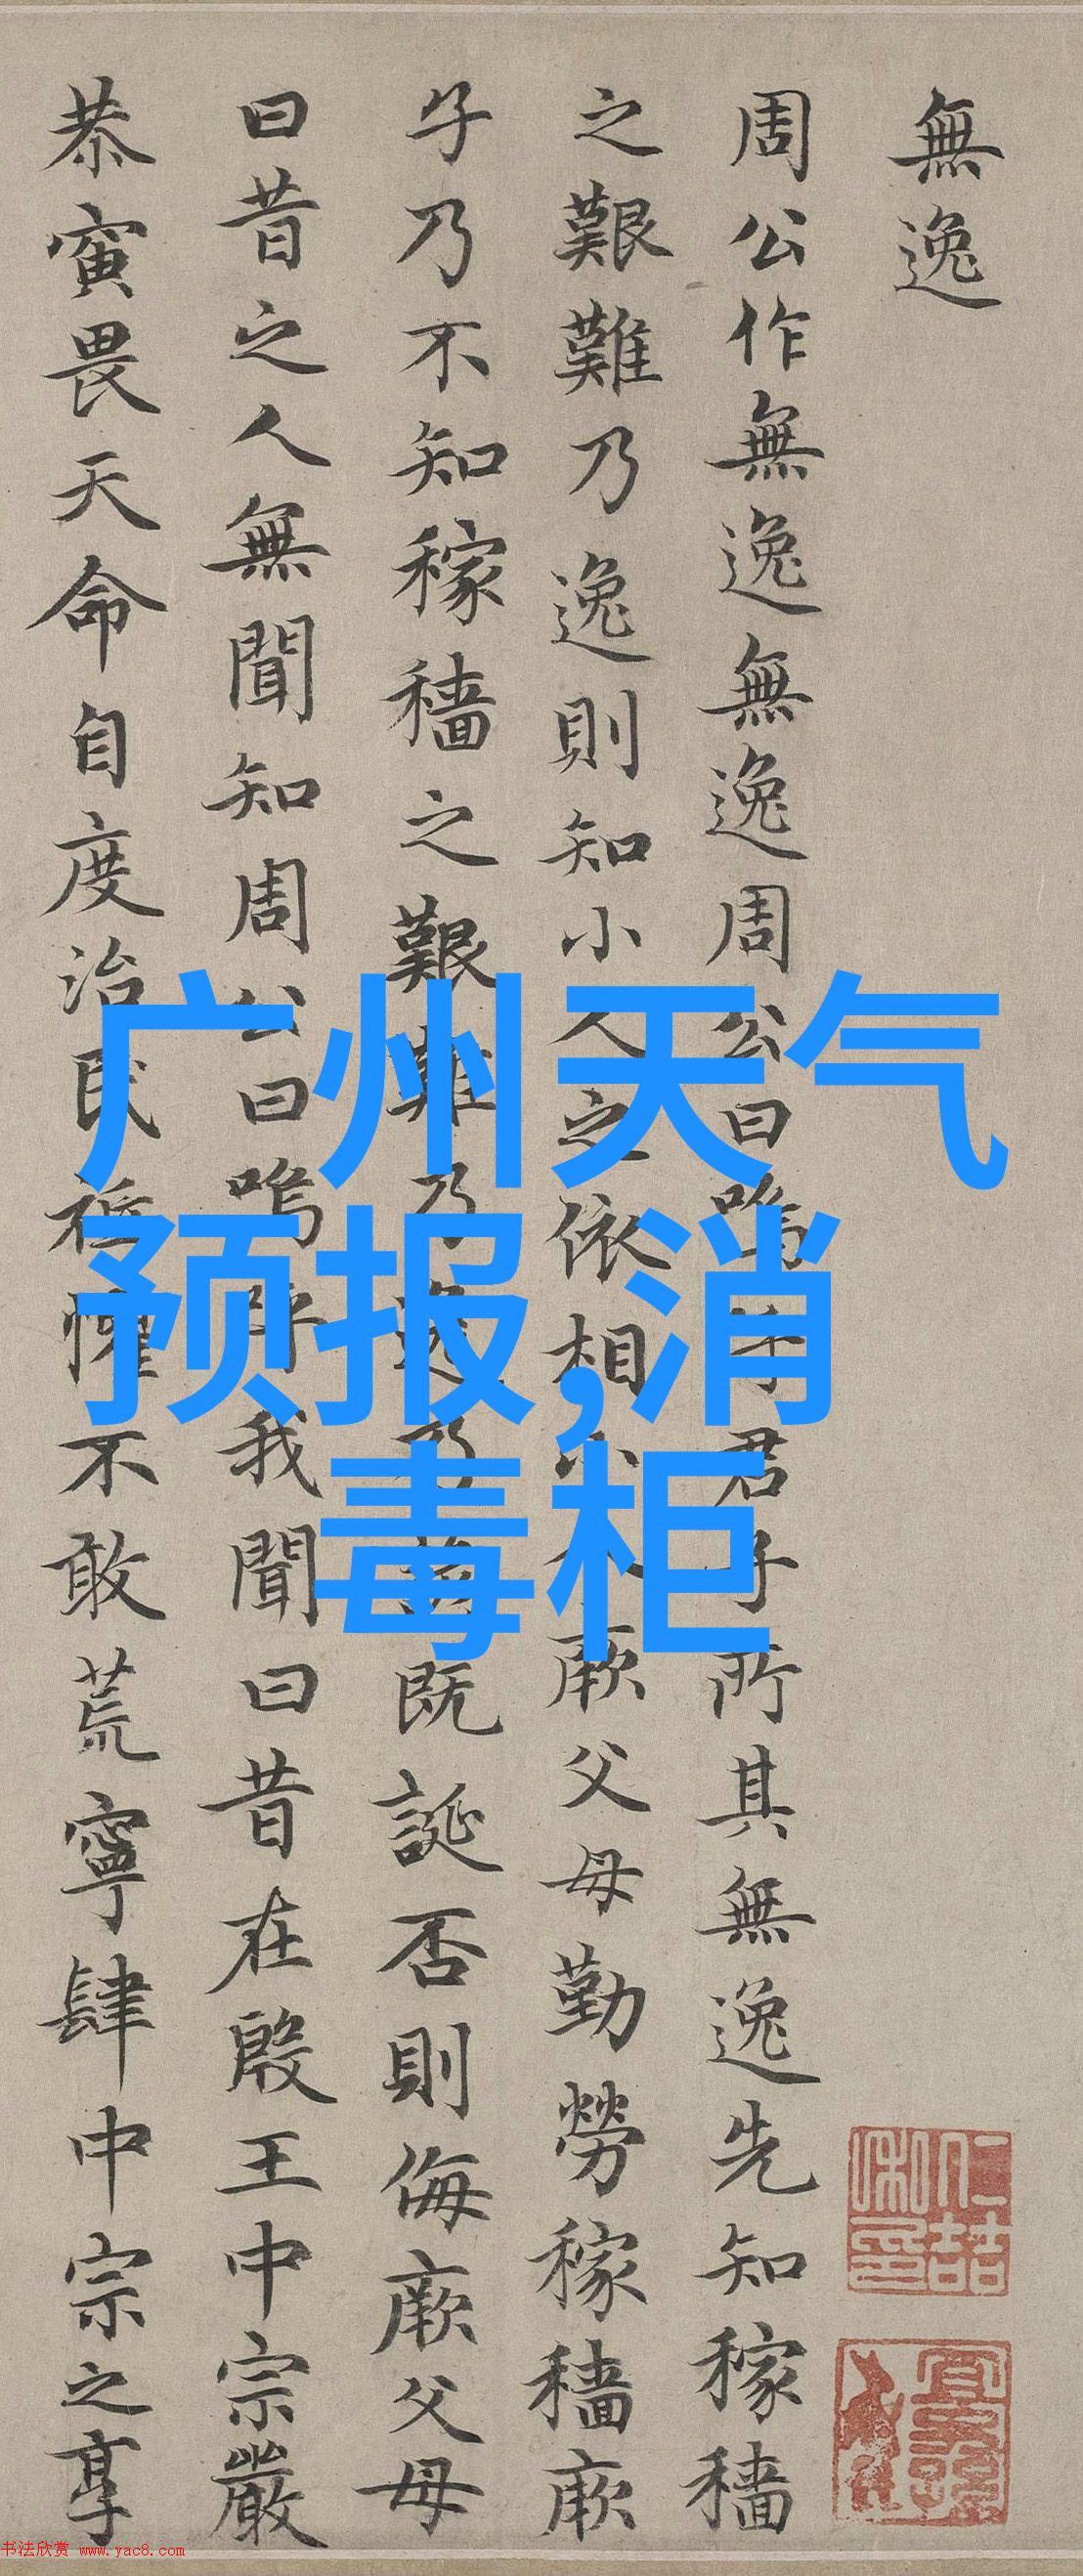 無逸
周公作無逸無逸周公曰嗚乎君子所其無逸先知稼穡
之艱難乃逸則知小人之依相小人厥父母勤勞稼穡厥
子乃不知稼穡之艱難乃逸乃諺既誕否則侮厥父母
曰昔之人無聞知周公曰嗚呼我聞曰昔在殷王中宗嚴
恭寅畏天命自度治民祗懼不敢荒寧肆中宗之享
广州天气
预报,消
毒柜
书法欣赏 www.yac8.com